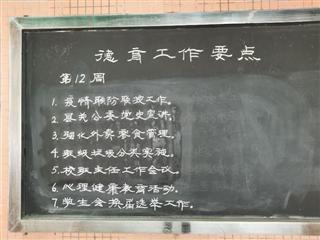 德育工作要点
第12周
1. 疫情联防联控工作。
2. 夏芫公委党史宣讲。
3. 强化外卖零食管理。
4. 班级垃圾分类实施。
5. 校班主任工作会议。
6. 心理健康教育活动。
7. 学生会换届选举工作。